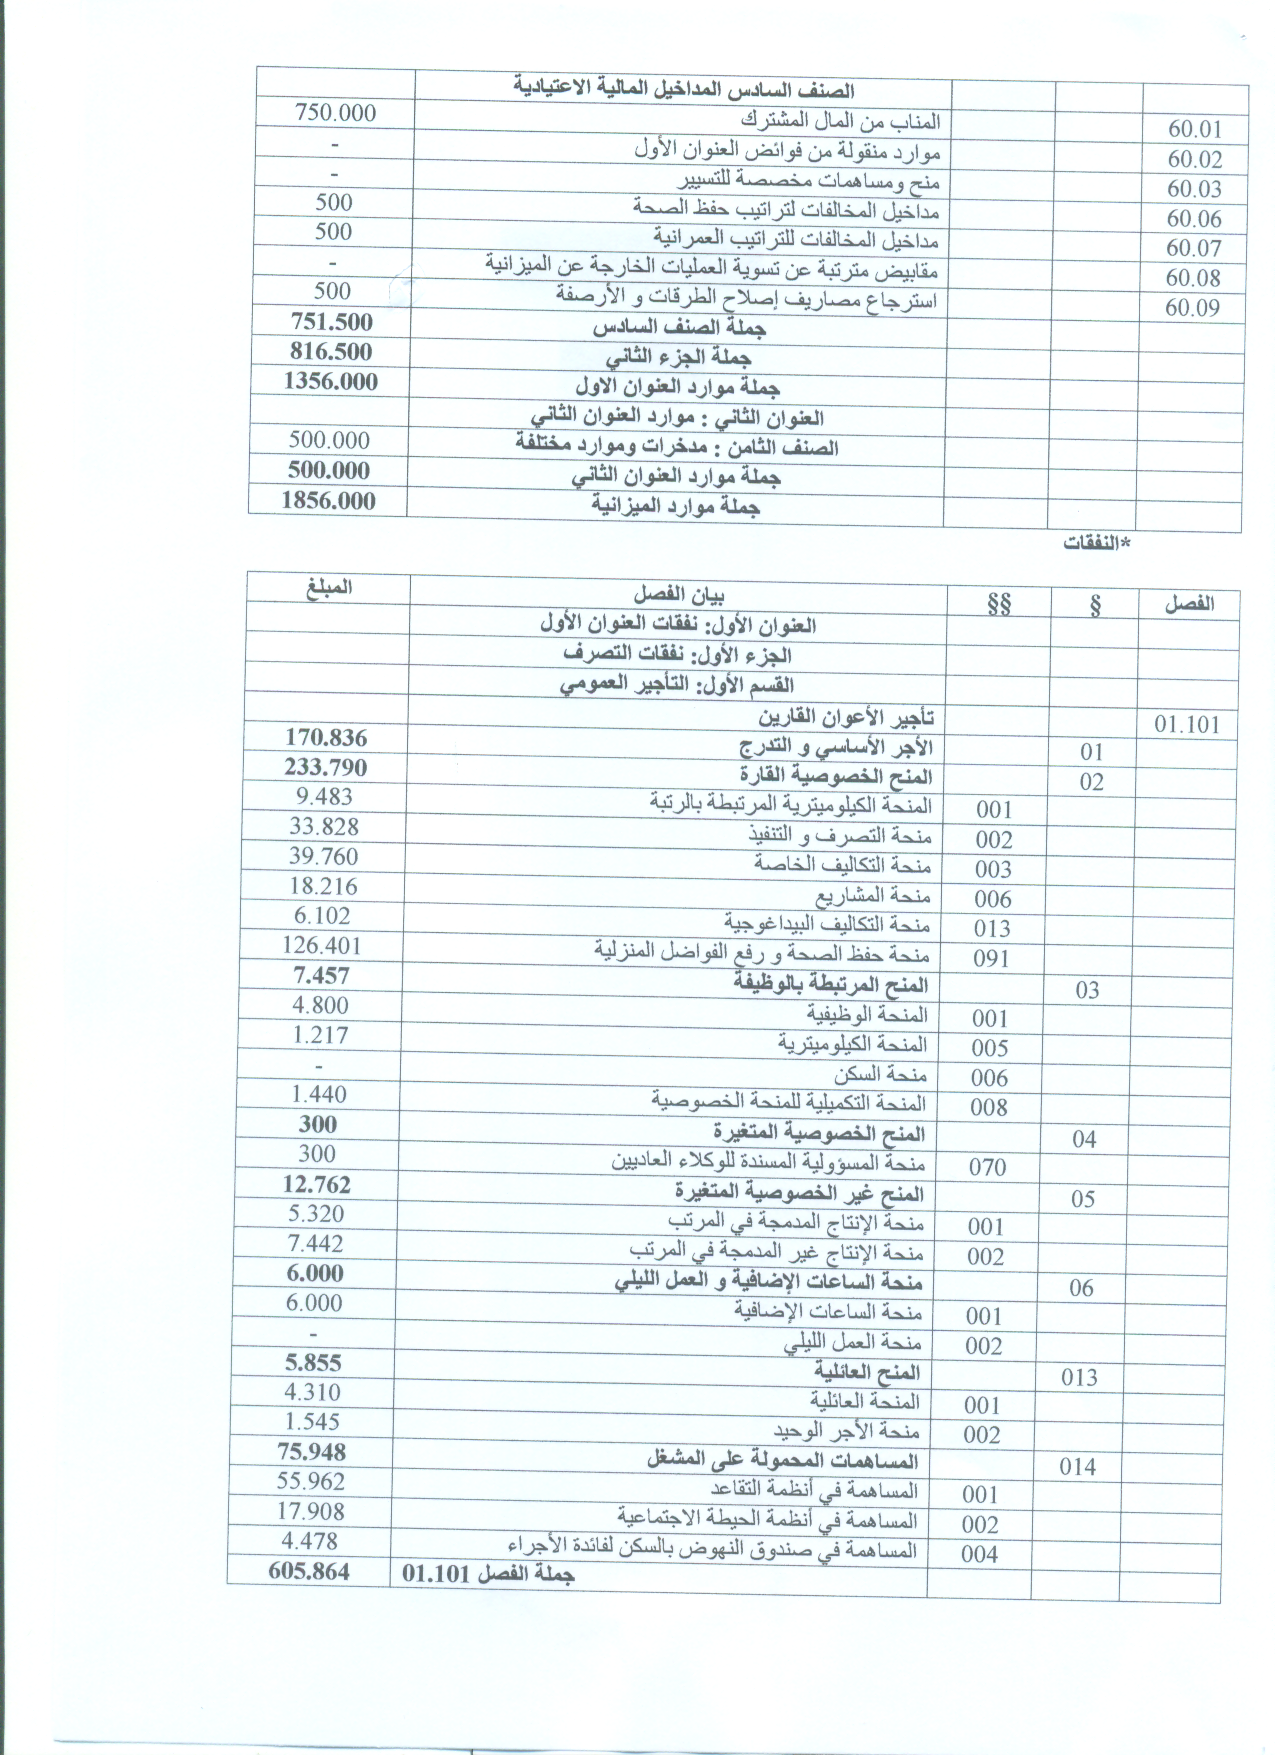 الصنف السادس المداخيل المالية الاعتيادية
60.01 المناب من المال المشترك 750.000
60.02 موارد منقولة من فوائض العنوان الأول -
60.03 منح ومساهمات مخصصة للتسيير -
60.06 مداخيل المخالفات لتراتيب حفظ الصحة 500
60.07 مداخيل المخالفات للتراتيب العمرانية 500
60.08 مقابيض مترتبة عن تسوية العمليات الخارجة عن الميزانية -
60.09 استرجاع مصاريف إصلاح الطرقات و الأرصفة 500
جملة الصنف السادس 751.500
جملة الجزء الثاني 816.500
جملة موارد العنوان الاول 1356.000
العنوان الثاني : موارد العنوان الثاني
الصنف الثامن : مدخرات وموارد مختلفة 500.000
جملة موارد العنوان الثاني 500.000
جملة موارد الميزانية 1856.000
*النفقات
الفصل § §§ بيان الفصل المبلغ
العنوان الأول: نفقات العنوان الأول
الجزء الأول: نفقات التصرف
القسم الأول: التأجير العمومي
01.101 تأجير الأعوان القارين
01 الأجر الأساسي و التدرج 170.836
02 المنح الخصوصية القارة 233.790
001 المنحة الكيلوميترية المرتبطة بالرتبة 9.483
002 منحة التصرف و التنفيذ 33.828
003 منحة التكاليف الخاصة 39.760
006 منحة المشاريع 18.216
013 منحة التكاليف البيداغوجية 6.102
091 منحة حفظ الصحة و رفع الفواضل المنزلية 126.401
03 المنح المرتبطة بالوظيفة 7.457
001 المنحة الوظيفية 4.800
005 المنحة الكيلوميترية 1.217
006 منحة السكن -
008 المنحة التكميلية للمنحة الخصوصية 1.440
04 المنح الخصوصية المتغيرة 300
070 منحة المسؤولية المسندة للوكلاء العاديين 300
05 المنح غير الخصوصية المتغيرة 12.762
001 منحة الإنتاج المدمجة في المرتب 5.320
002 منحة الإنتاج غير المدمجة في المرتب 7.442
06 منحة الساعات الإضافية و العمل الليلي 6.000
001 منحة الساعات الإضافية 6.000
002 منحة العمل الليلي -
013 المنح العائلية 5.855
001 المنحة العائلية 4.310
002 منحة الأجر الوحيد 1.545
014 المساهمات المحمولة على المشغل 75.948
001 المساهمة في أنظمة التقاعد 55.962
002 المساهمة في أنظمة الحيطة الاجتماعية 17.908
004 المساهمة في صندوق النهوض بالسكن لفائدة الأجراء 4.478
جملة الفصل 01.101 605.864